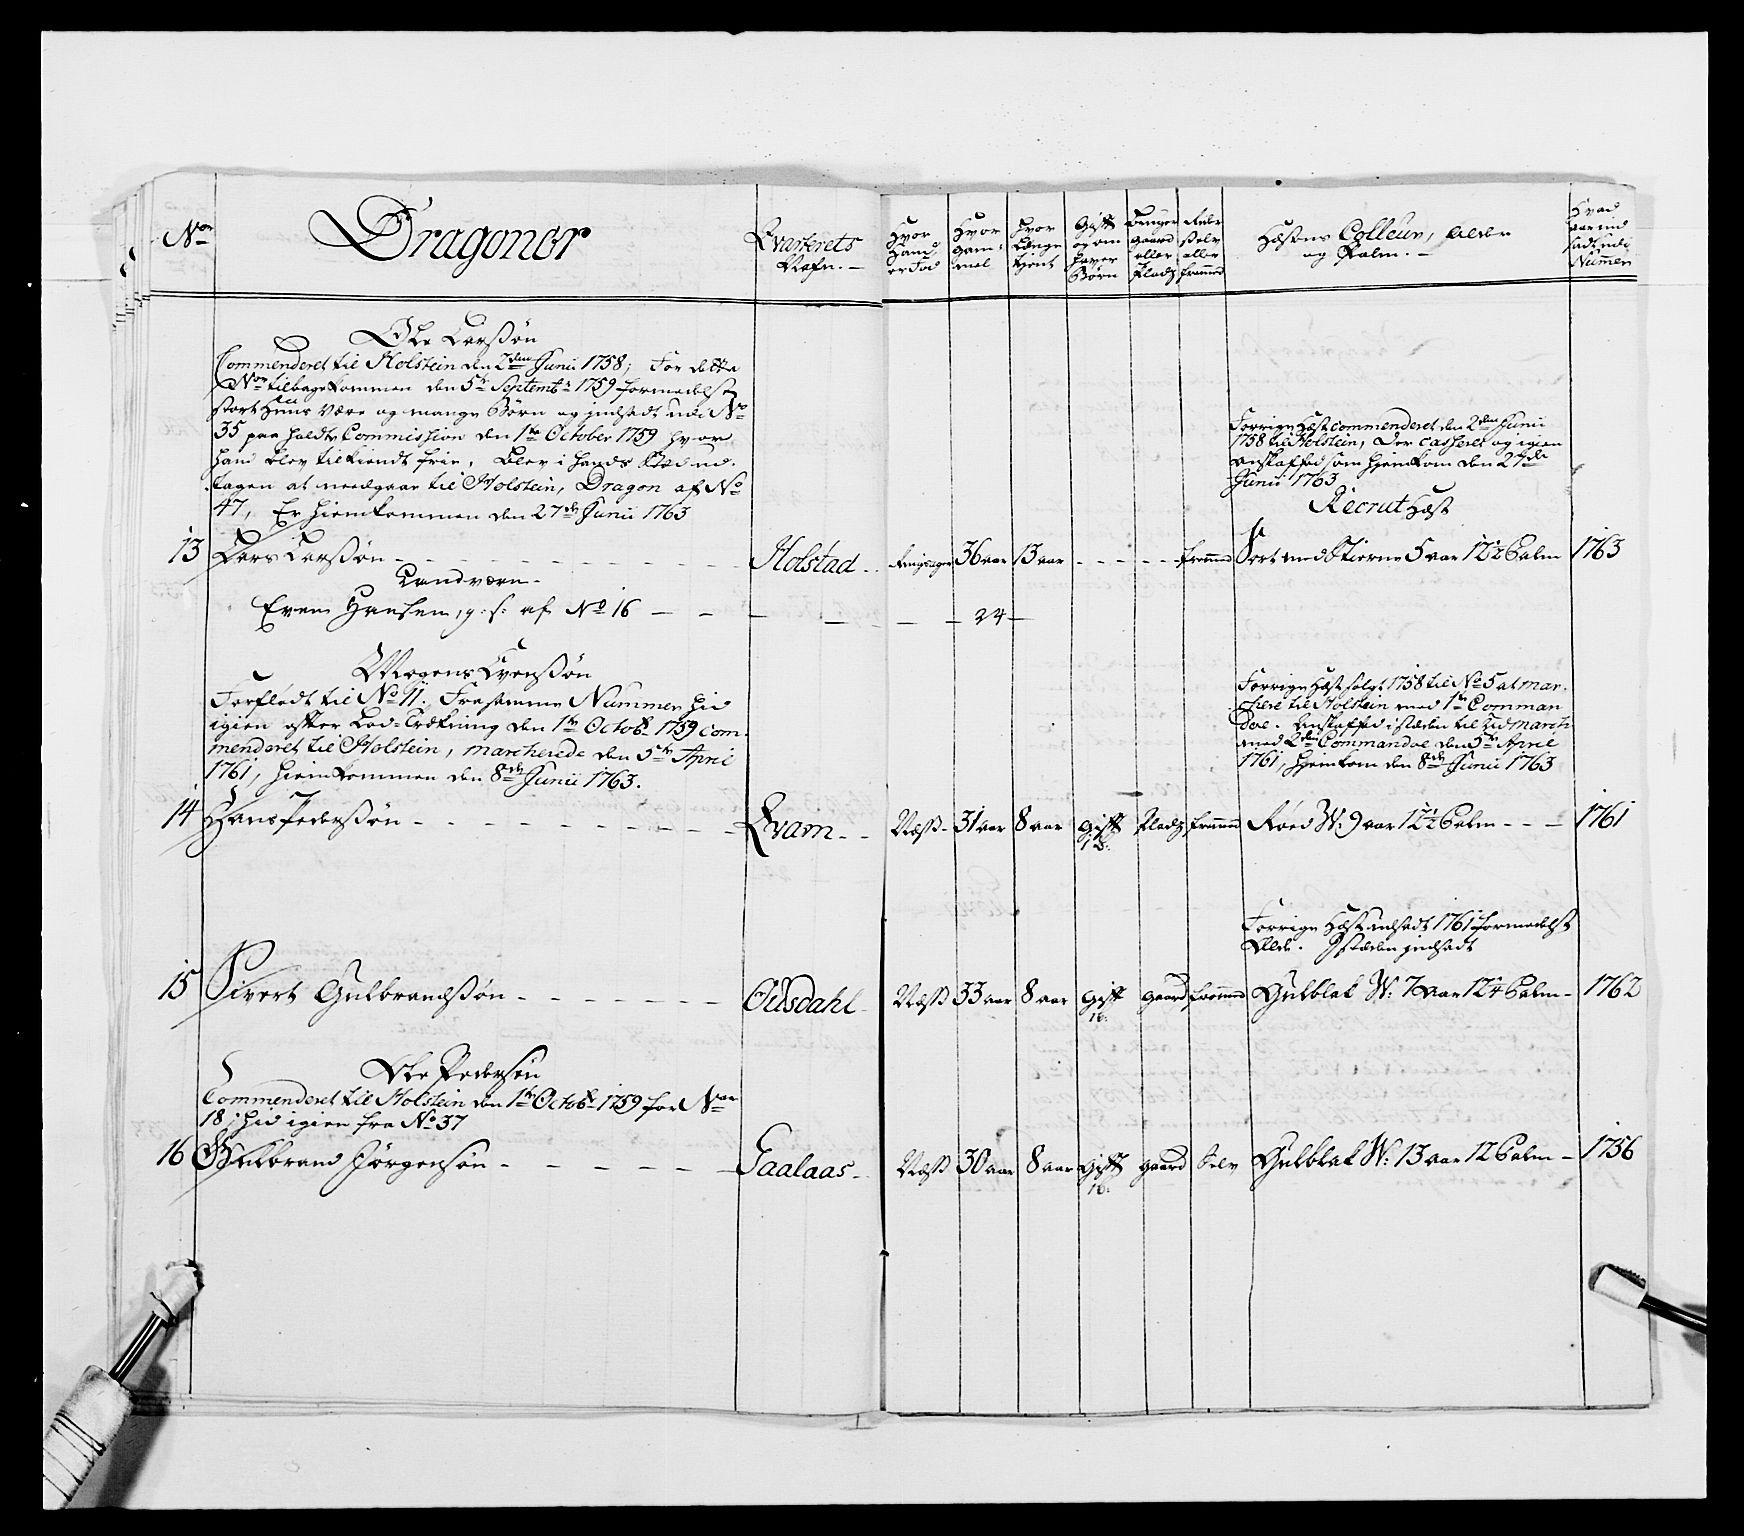 No.
Dragoner
Qvarterets Nafn.
Hvor Hand er Fød
Hvor gam- mel
Hvor Længe tient
Gift og om haver Børn
Bruger gaard eller Pladz
Rider Selv eller fremmed
Hæstens Colleur, Alder og Palm.
Hvad aar ind sadt udi Nummer
Ole Larssøn
Commenderet til Holstein den 2den Junii 1758; For dette
No. tilbagekommen den 5te Septembr 1759 formedelst
stort Huus være og mange Børn og indsadt udi No
35 paa holdte Commission den 1te October 1759 hvor
hand blev tilkiendt frie, blev i hands Sted ud-
tagen at medgaae til Holstein, Dragon af No
47, Er hiemkommen den 27de Junii 1763
Forrige Hæst commenderet den 2den Junii
1758 til Holstein, Der casheret og igien
anskaffed som hjemkom den 27de
Junii 1763
Recrut Hæst
13 Lars Larssøn Holstad Ringsager 36 aar 13 aar fremmed Sort med Stierne 5 aar 12½ Palm 1763
Landværn
Even Hansen, g: s: af No 16 24
Mogens Evenssøn
Forfledt til No 11. Fra samme Nummer hid
igien efter Lod-Trækning den 1te Octobr 1759 com-
menderet til Holstein, marcherede den 5te April
1761, hiemkommen den 8de Junii 1763.
Forrige Hæst solgt 1758 til No 5 at mar-
chere til Holstein med 1te Comman
doe. Anskaffed i steden til hid march
med 2det Commandoe den 5te April
1761, hjemkom den 8de Junii 1763
14 Hans Pederssøn Qvam Næss 31 aar 8 aar gift 1 B: Pladz fremmed Røed W: 9 aar 12½ Palm 1761
Forrige Hæst udsadt 1761 formedelst
Ælde. I steden indsadt
15 Sivert Gulbrandssøn Ousdahl Næss 33 aar 8 aar gift 1 B: gaard fremmed Gulblak W: 7 aar 12¼ Palm 1762
Ole Pedersøn
Commenderet til Holstein den 1te Octobr 1759 for No.
18, hid igien fra No 37
16 Gulbrand Jørgensøn Gaalaas Næss 30 aar 8 aar gift 1 B: gaard Selv Gulblak W: 13 aar 12 Palm 1756